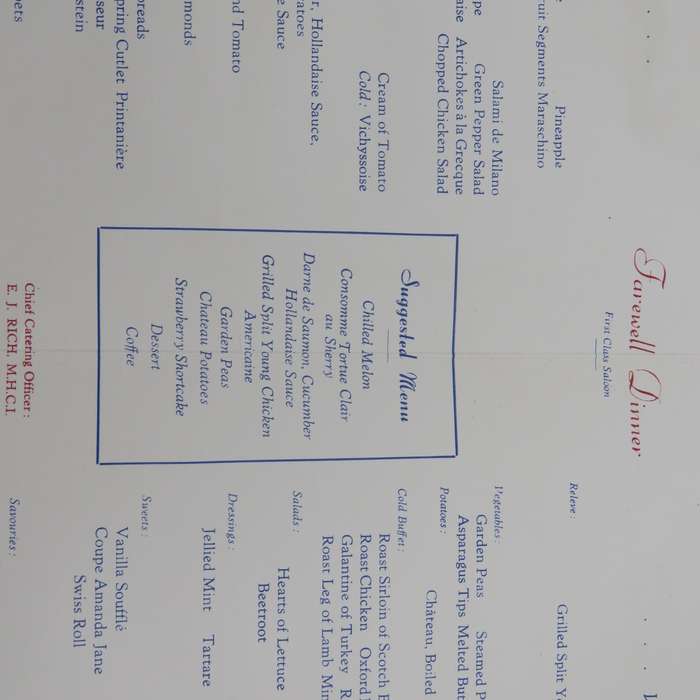 Farewell Dinner
First Class Saloon
Pineapple
ruit Segments Maraschino
Salami de Milano
pe Green Pepper Salad
aise Artichokes à la Grecque
Chopped Chicken Salad
Cream of Tomato
Cold: Vichyssoise
r, Hollandaise Sauce,
atoes
e Sauce
nd Tomato
monds
preads
pring Cutlet Printanière
seur
stein
Suggested Menu
Chilled Melon
Consomme Tortue Clair
au Sherry
Darne de Saumon, Cucumber
Hollandaise Sauce
Grilled Split Young Chicken
Americaine
Garden Peas
Chateau Potatoes
Strawberry Shortcake
Dessert
Coffee
Chief Catering Officer:
E. J. RICH, M.H.C.I.
Releve:
Grilled Split Yo
Vegetables:
Garden Peas Steamed P
Asparagus Tips Melted But
Potatoes:
Château, Boiled
Cold Buffet:
Roast Sirloin of Scotch B
Roast Chicken Oxford
Galantine of Turkey R
Roast Leg of Lamb Min
Salads:
Hearts of Lettuce
Beetroot
Dressings:
Jellied Mint Tartare
Sweets:
Vanilla Soufflé
Coupe Amanda Jane
Swiss Roll
Savouries: